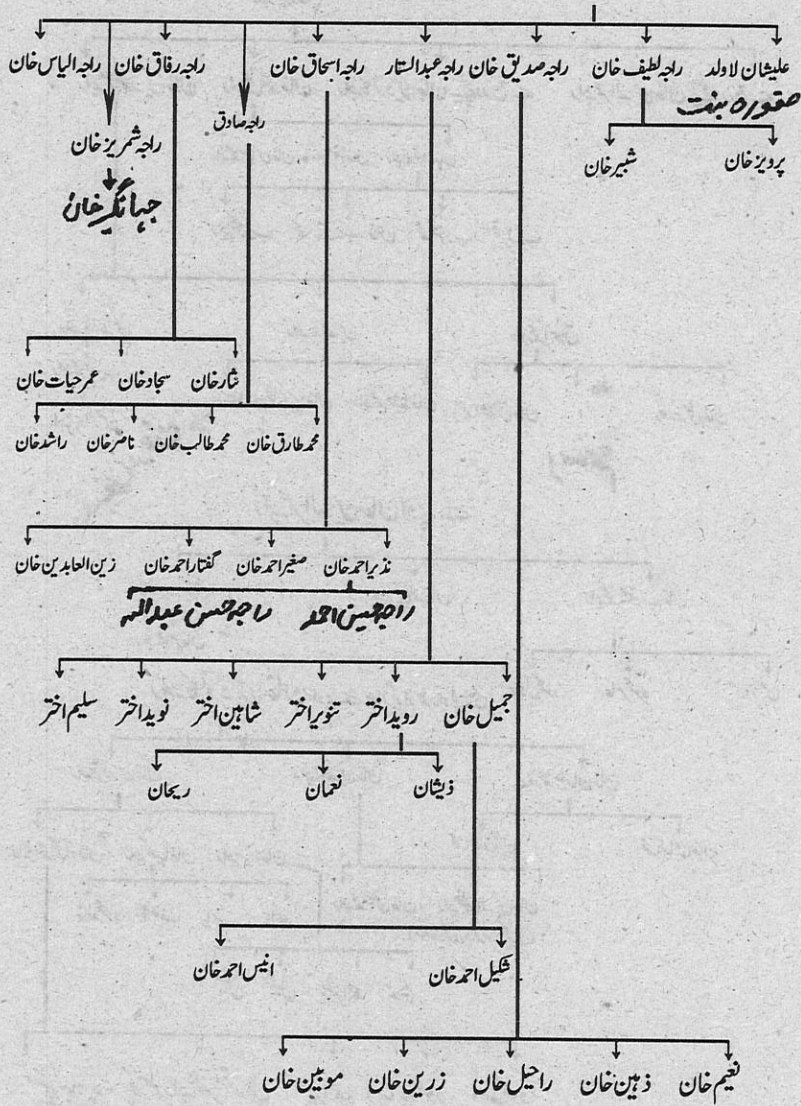 علیشان لاولد راجہ لطیف خان راجہ صدیق خان راجہ عبدالستار راجہ اسحاق خان راجہ رفاق خان راجہ الیاس خان
بنت
راجہ صادق
پرویز خان شبیر خان
راجہ شمریز خان
جہانگیر خان
نثار خان سجاد خان عمر حیات خان
محمد طارق خان محمد طالب خان ناصر خان راشد خان
نذیر احمد خان صغیر احمد خان گفتار احمد خان زین العابدین خان
راجہ حسین احمد راجہ حسن عبداللہ
جمیل خان روید اختر تنویر اختر شاہین اختر نوید اختر سلیم اختر
ذیشان نعمان ریحان
شکیل احمد خان انیس احمد خان
نعیم خان ذہین خان راحیل خان زرین خان موبین خان